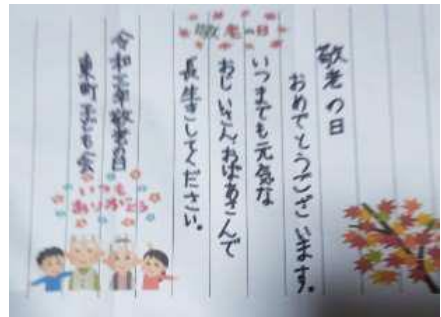 敬老の日
おめでとうございます。
いつまでも元気な
おじいさん、おばあさんで
長生きしてください。
敬老の日
令和三年敬老の日
東町子ども会
いつも
ありがとう